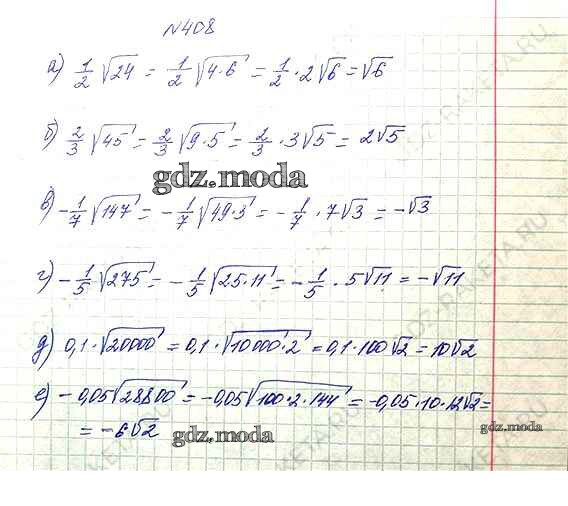 №408
а) 1/2 √24 = 1/2 √4·6 = 1/2 · 2√6 = √6
б) 2/3 √45 = 2/3 √9·5 = 2/3 · 3√5 = 2√5
gdz.moda
в) -1/7 √147 = -1/7 √49·3 = -1/7 · 7√3 = -√3
г) -1/5 √275 = -1/5 √25·11 = -1/5 · 5√11 = -√11
д) 0,1·√20000 = 0,1·√10000·2 = 0,1·100√2 = 10√2
е) -0,05√28800 = -0,05√100·2·144 = -0,05·10·12√2 =
= -6√2
gdz.moda
gdz.moda